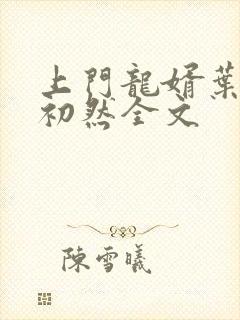 上門龍婿葉
初然全文
陳雪曦